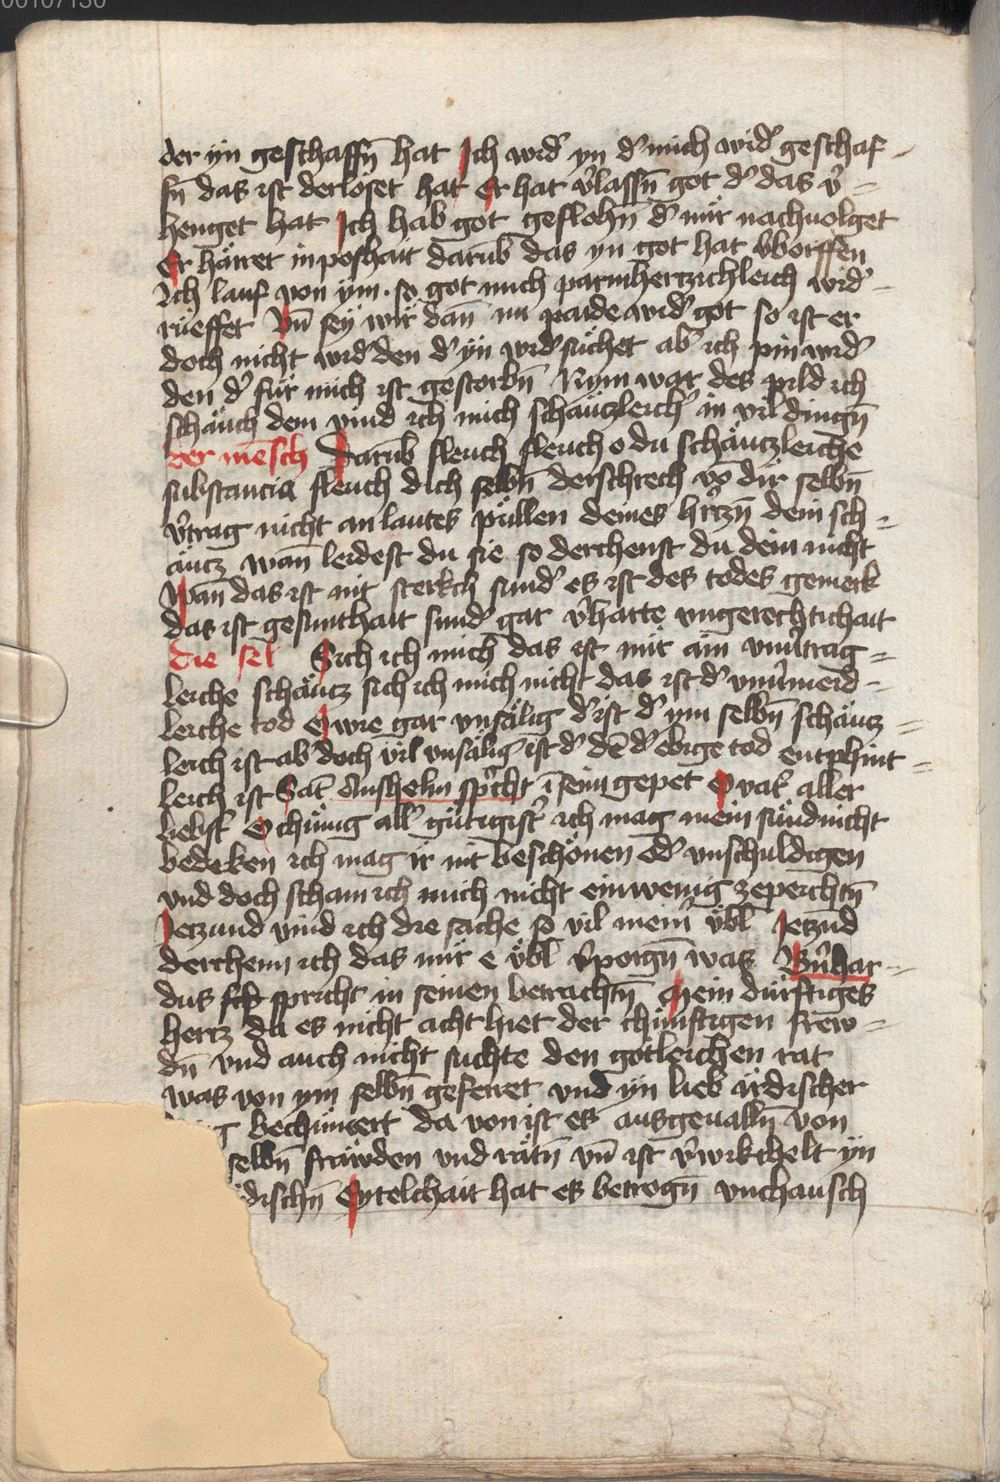 00107130
der ÿn geschaffn̄ hat Ich wid᷑ yn d᷑ mich wid᷑ geschaf-
fn̄ das ist derlöset hat Er hat v᷑lassn̄ got d᷑ das v᷑=
henget hat Ich hab got geflohn̄ d᷑ mir nachuolget
Er härret in poshait darūb das yn got hat v᷑worffen
Ich lauf von ym · so got mich parmhertzichleich wid᷑-
rüeffet Vn̄ sey wir dan̄ im paide wid᷑ got so ist er
doch nicht wid᷑ den d᷑ yn wid᷑ süchet ab᷑ ich pin wid᷑
den d᷑ für mich ist gestorbn̄ Nym war des pild ich
schäuch dem vind ich mich schäuczleich᷑ in vil dingn̄
der mēsch Darūb fleuch fleuch o du schäutzleiche
substancia fleuch dich selbn̄ derschrech vō dir selbn̄
v᷑trag nicht an lautes püllen deines h᷑tzn̄ dein sch=
äucz wan̄ leidest du sie so derchenst du dein nicht
Wan̄ das ist nit sterkch sund᷑ es ist des todes gemerk
das ist gesunthait sund᷑ gar v᷑harte vngerechtichait
die sel Sich ich mich das ist mir ain vnu᷑trag=
leiche schäutz sich ich mich nicht das ist d᷑ vnu᷑meid-
leiche tod O wie gar vnsälig d᷑ ist d᷑ ym selbn̄ schäucz=
leich ist ab᷑ doch vil vnsälig᷑ ist d᷑ dē d᷑ ebige tod entphint=
leich ist Sāt Anshelm sp᷑cht ī seim gepet O vat᷑ aller
liebst᷑ O chünig all᷑ gütigist᷑ ich mag mein sünd nicht
bedeken ich mag ir nit beschönen od᷑ vnschuldigen
vnd doch scham ich mich nicht ein wenig zeperchtn̄
Jetzund vind ich die sache so vil meīr übl᷑ Jetzūd
derchenn ich das mir e übl᷑ v᷑porgn̄ was B᷑nhar-
dus spricht in seinen betrachtn̄ Mein dürftiges
hertz da es nicht acht hiet der chünftigen frew=
dn̄ vnd auch nicht suchte den gotleichen rat
was von ym selbn̄ geferret vnd yn lieb ärdischer
bechümert da von ist es ausgeualln̄ von
selbn̄ fräwden vnd rätn̄ vn̄ ist v᷑wikchelt yn
dischn̄ Eytelchait hat es betrogn̄ vnchausch